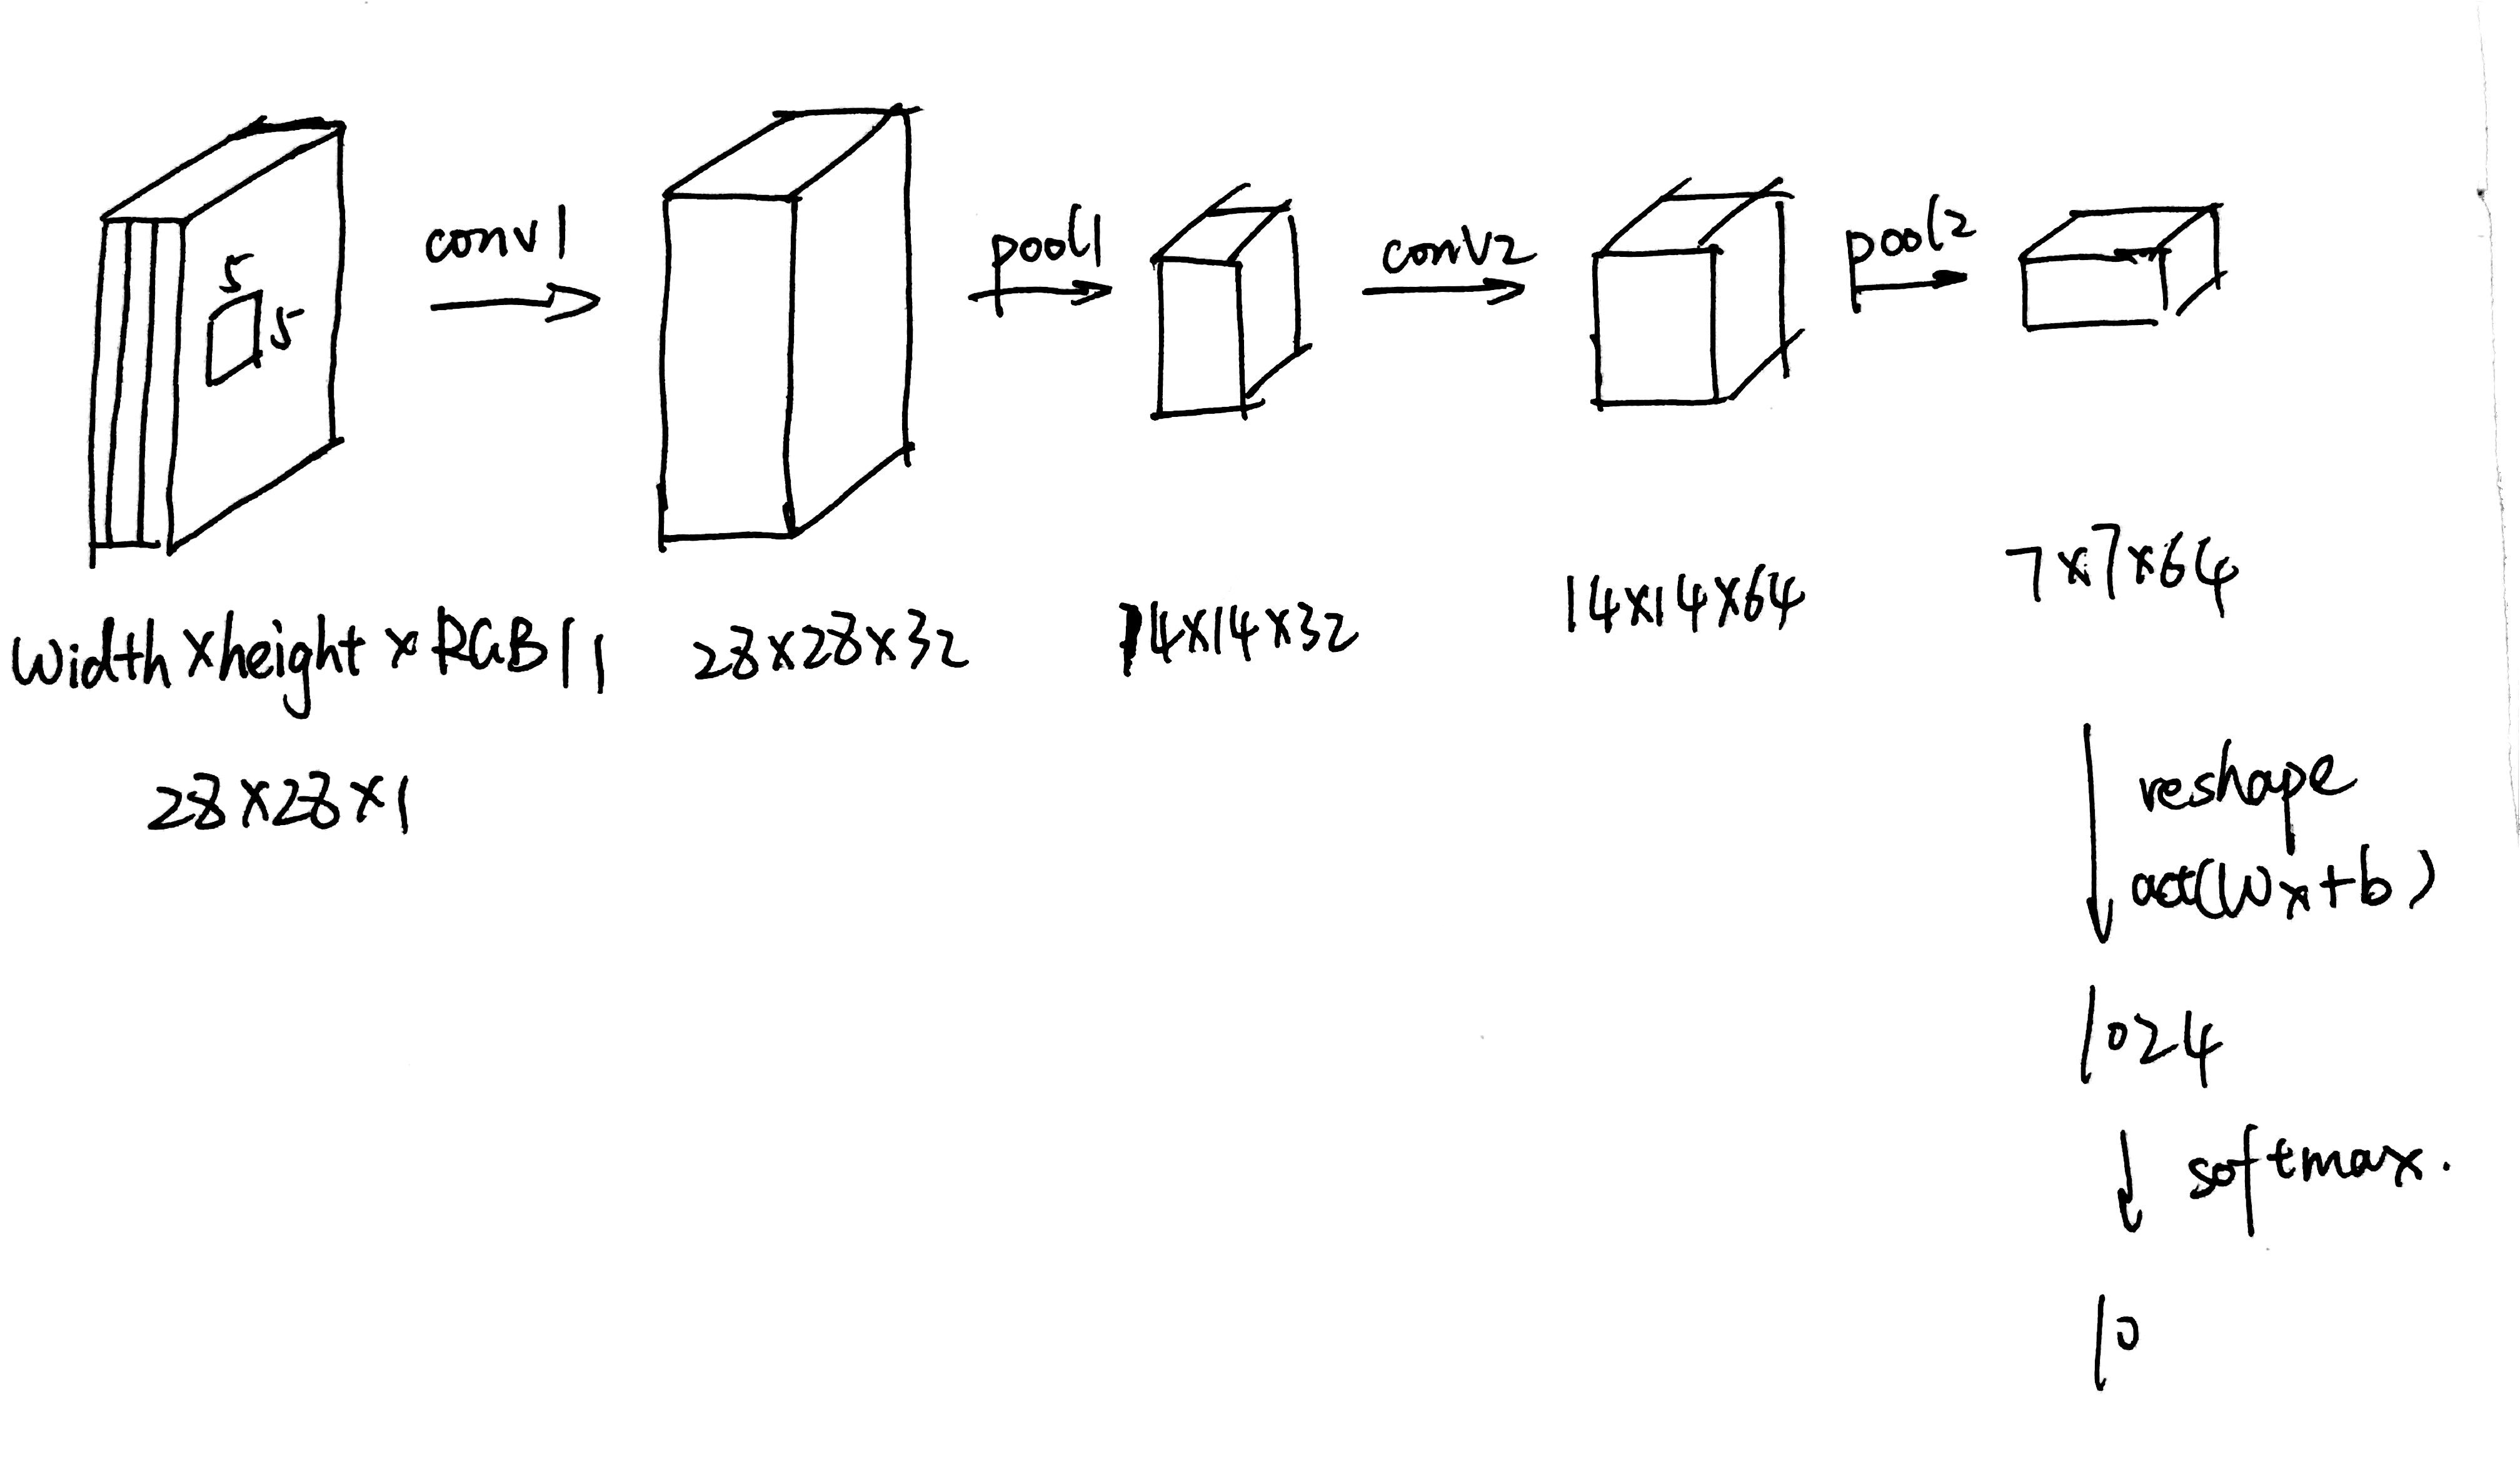 5
5
conv1
pool1
conv2
pool2
width × height × RGB | 1
28×28×1
28×28×32
14×14×32
14×14×64
7×7×64
reshape
act(Wx+b)
1024
softmax.
10